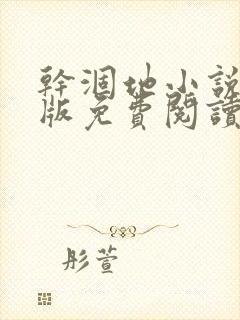 幹涸地小說
版免費閱讀
彤萱